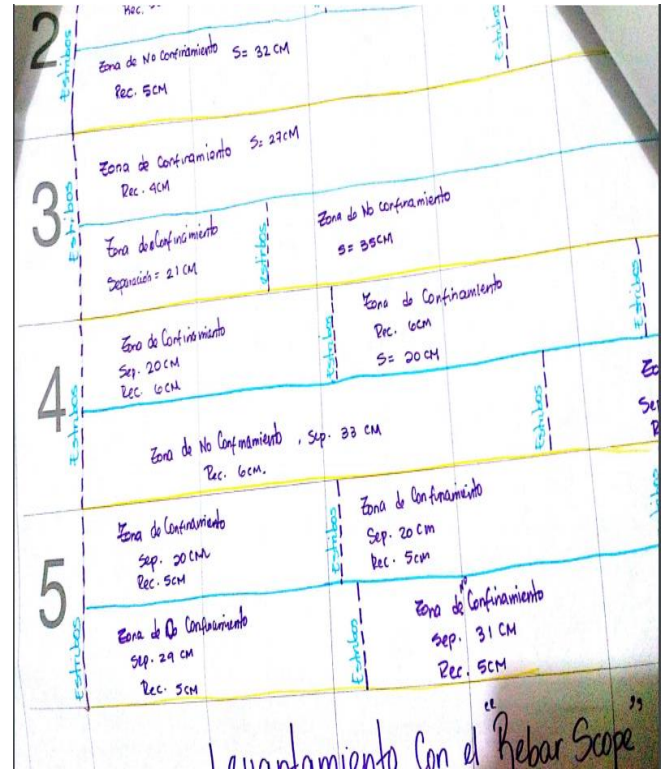 2
Rec.
Estribos
Estribos
Zona de No Confinamiento S= 32 CM
Rec. 5CM
3
Zona de Confinamiento S= 27CM
Rec. 4CM
Estribos
Zona de Confinamiento
Separación = 21 CM
estribos
Zona de No Confinamiento
S= 35CM
4
Zona de Confinamiento
Sep. 20CM
Rec. 6CM
Estribos
Zona de Confinamiento
Rec. 6CM
S= 20 CM
Estribos
Estribos
Zona de No Confinamiento , Sep. 33 CM
Rec. 6CM.
Estribos
Zo
Se
R
5
Zona de Confinamiento
Sep. 20CM
Rec. 5CM
Estribos
Zona de Confinamiento
Sep. 20 Cm
Rec. 5cm
Estribos
Zona de Confinamiento
Sep. 29 CM
Rec. 5CM
Estribos
Zona de Confinamiento
Sep. 31 CM
Rec. 5CM
Levantamiento Con el "Rebar Scope"